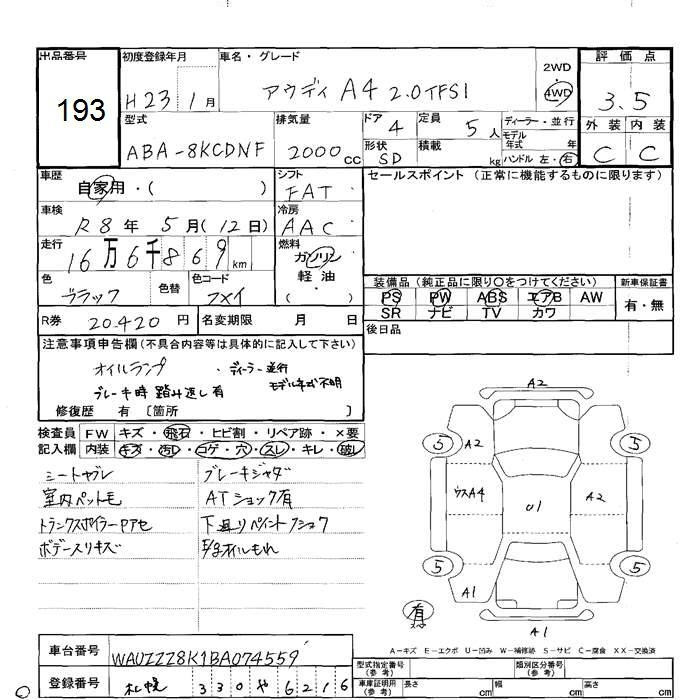 出品番号 初度登録年月 車名・グレード 評価点
193 H23 1月 アウディ A4 2.0TFSI 2WD 4WD 3.5
型式 排気量 ドア 定員 ディーラー・並行 外装 内装
ABA-8KCDNF 2000cc 4 5人 モデル年式 年 C C
形状 SD 積載 kg ハンドル 左・右
車歴 シフト セールスポイント (正常に機能するものに限ります)
自家用・( ) FAT
車検 冷房
R8年 5月(12日) AAC
走行 燃料
16万6千869km ガソリン
軽油
色 色替 色コード ( ) 装備品(純正品に限り〇をつけてください) 新車保証書
ブラック PS PW ABS エアB AW 有・無
SR ナビ TV カワ
R券 20.420円 名変期限 月 日 後日品
注意事項申告欄(不具合内容等は具体的に記入して下さい)
オイルランプ ・ディーラー並行
ブレーキ時 踏み返し有 モデル年式不明
修復歴 有 〔箇所 〕
検査員 FW キズ・飛石・ヒビ割・リペア跡・×要
記入欄 内装 キズ・汚レ・コゲ・穴・スレ・キレ・破レ
シートヤブレ ブレーキジャダ
室内ペット毛 ATショック有
トランクスポイラーPアセ
ボデースリキズ
A2
5 A2 5
ウスA4 U1 A2
5 5
A1
A1
A-キズ E-エクボ U-凹み W-補修跡 S-サビ C-腐食 XX-交換済
車台番号 WAUZZZ8K1BA074559
登録番号 札幌 330 や 6216
型式指定番号(参考) 類別区分番号(参考)
車庫証明用(参考) 長さ cm 幅 cm 高さ cm